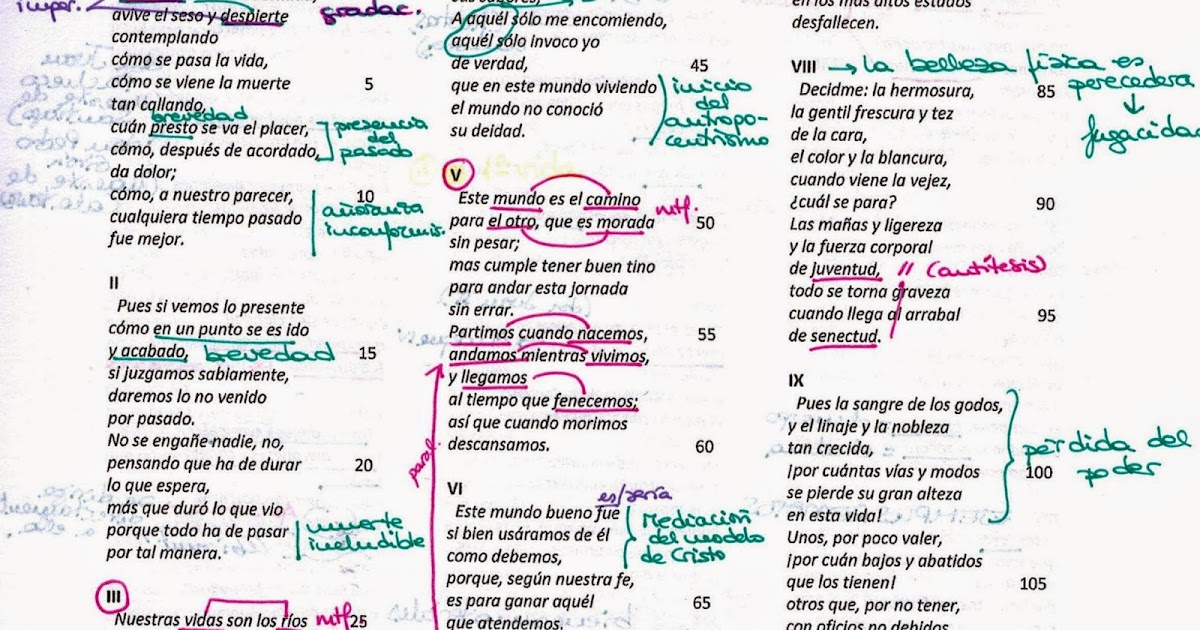 imper.
gradac.
avive el seso y despierte
contemplando
cómo se pasa la vida,
cómo se viene la muerte 5
tan callando,
brevedad
cuán presto se va el placer,
presencia
del
pasado
cómo, después de acordado,
da dolor;
cómo, a nuestro parecer, 10
cualquiera tiempo pasado
fue mejor.
añoranza
inconformis.
II
Pues si vemos lo presente
cómo en un punto se es ido
y acabado, brevedad 15
si juzgamos sabiamente,
daremos lo no venido
por pasado.
No se engañe nadie, no,
pensando que ha de durar 20
lo que espera,
más que duró lo que vio
porque todo ha de pasar
por tal manera.
muerte
ineludible
III
Nuestras vidas son los ríos mtf. 25
A aquél sólo me encomiendo,
aquél sólo invoco yo
de verdad, 45
que en este mundo viviendo
el mundo no conoció
su deidad.
inicio
del
antropo-
centrismo
V
Este mundo es el camino
mtf.
para el otro, que es morada 50
sin pesar;
mas cumple tener buen tino
para andar esta jornada
sin errar.
Partimos cuando nacemos, 55
andamos mientras vivimos,
y llegamos
al tiempo que fenecemos;
así que cuando morimos
descansamos. 60
paral.
VI
es/sería
Este mundo bueno fue
si bien usáramos de él
como debemos,
Mediación
del modelo
de Cristo
porque, según nuestra fe,
es para ganar aquél 65
que atendemos.
en los más altos estados
desfallecen.
VIII → La belleza física es
perecedera
↓
fugacidad
Decidme: la hermosura, 85
la gentil frescura y tez
de la cara,
el color y la blancura,
cuando viene la vejez,
¿cuál se para? 90
Las mañas y ligereza
y la fuerza corporal
de juventud, // (antítesis)
todo se torna graveza
cuando llega al arrabal 95
de senectud.
IX
Pues la sangre de los godos,
y el linaje y la nobleza
tan crecida,
¡por cuántas vías y modos 100
se pierde su gran alteza
en esta vida!
pérdida del
poder
Unos, por poco valer,
¡por cuán bajos y abatidos
que los tienen! 105
otros que, por no tener,
con oficios no debidos